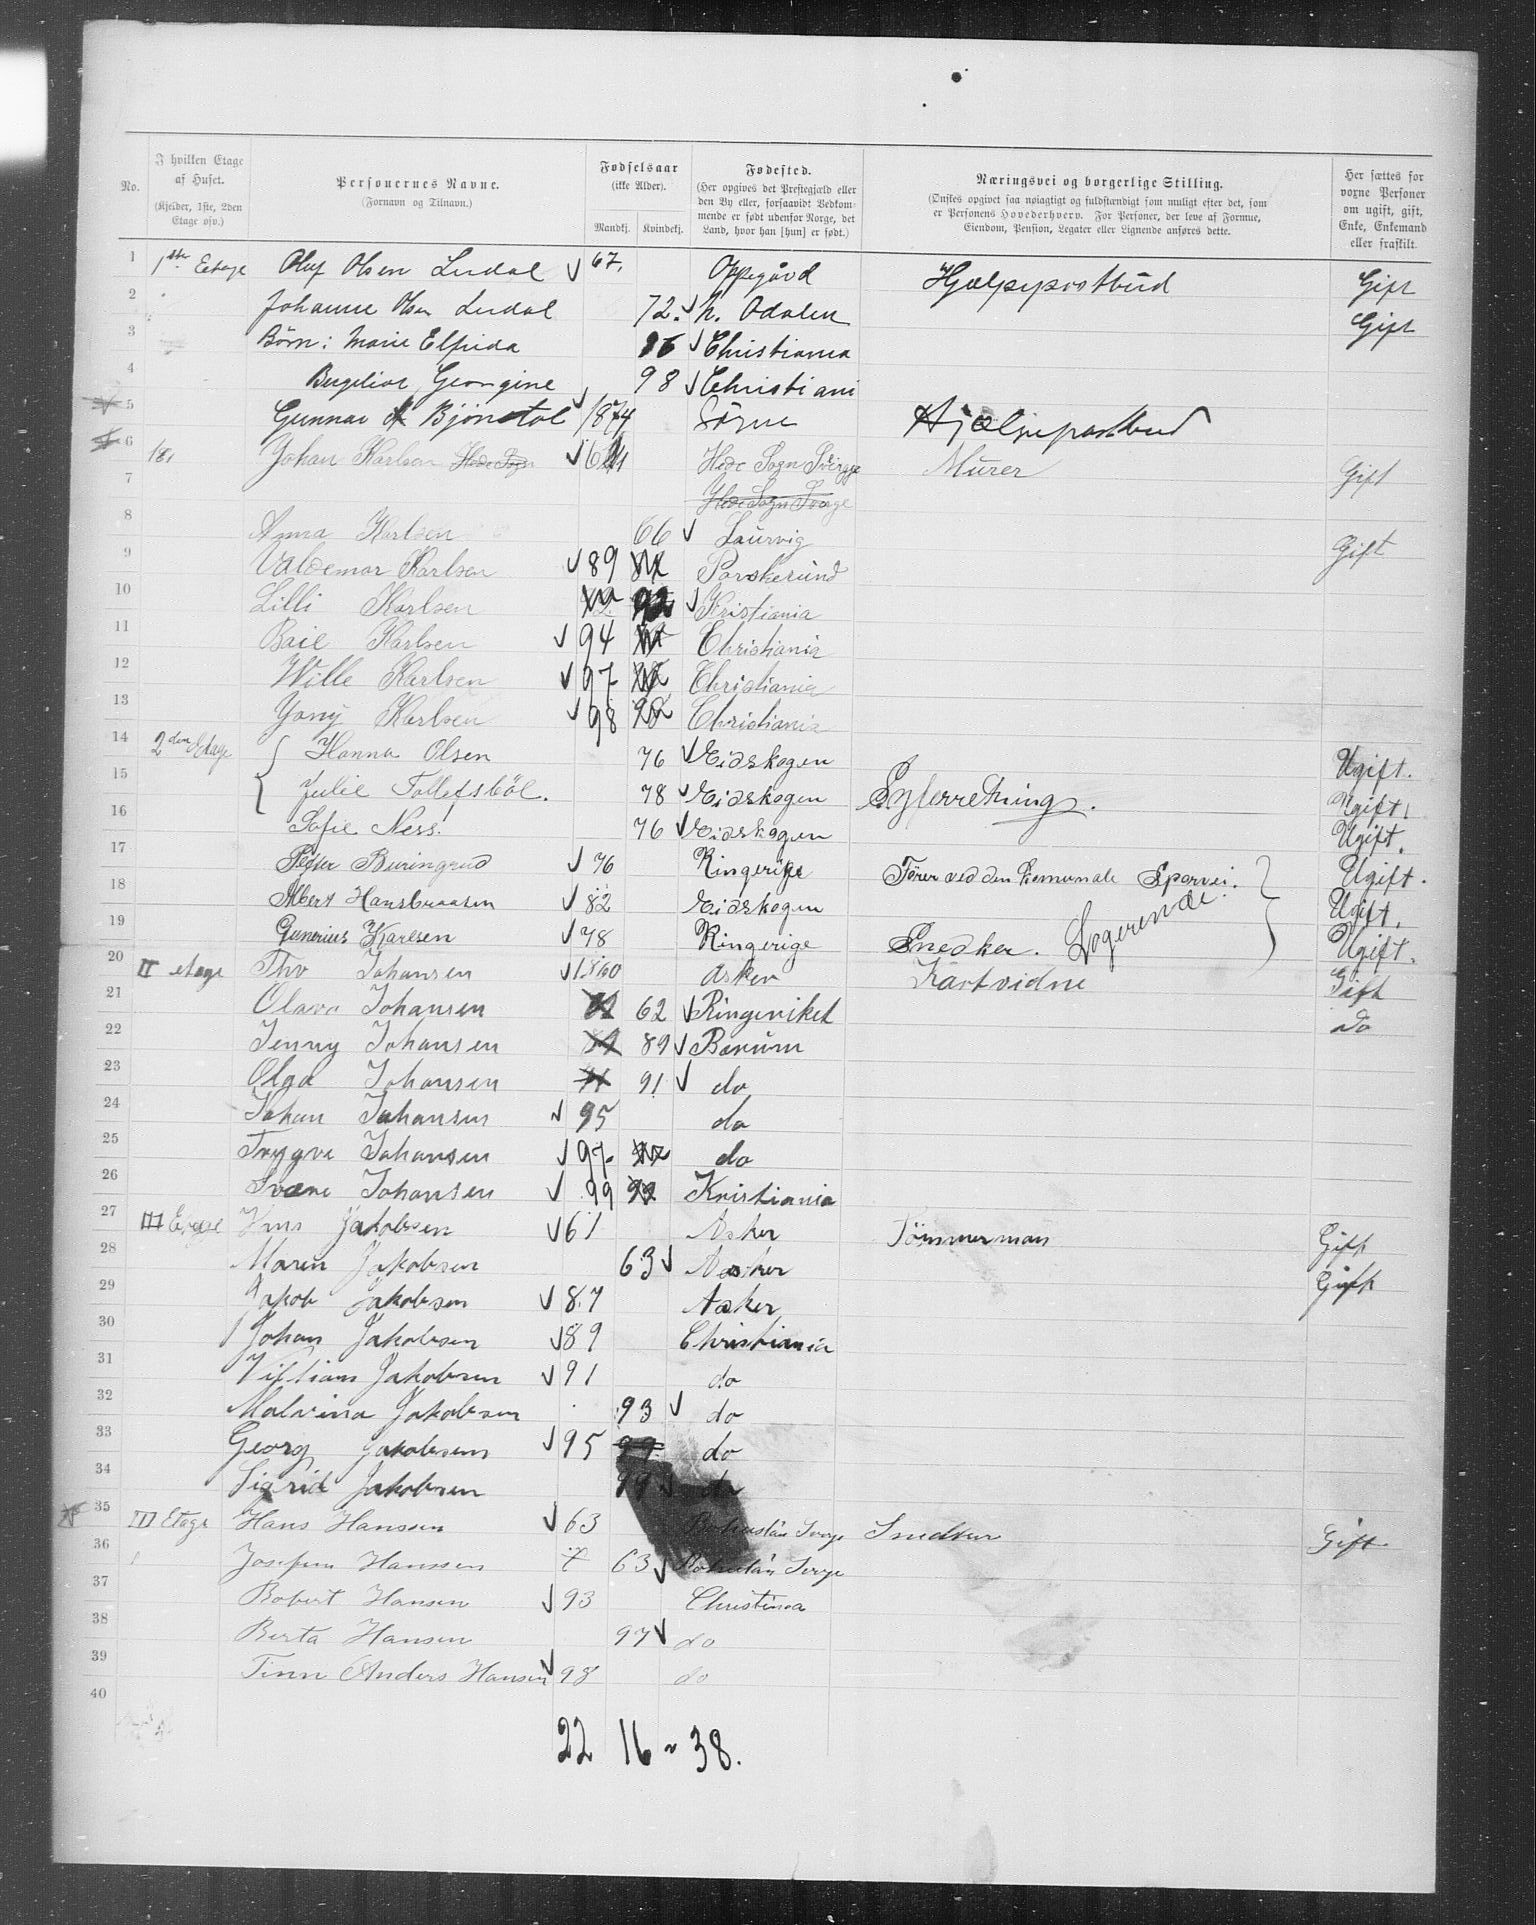 No. I hvilken Etage af Huset. (Kjelder, 1ste, 2den Etage osv.) Personernes Navne. (Fornavn og Tilnavn.) Fødselsaar (ikke Alder). Mandkj. Kvindekj. Fødested. (Her opgives det Prestegjæld eller den By eller, forsaavidt Vedkommende er født udenfor Norge, det Land, hvor han [hun] er født.) Næringsvei og borgerlige Stilling. (Ønskes opgivet saa nøiagtigt og fuldstændigt som muligt efter det, som er Personens Hovederhverv. For Personer, der leve af Formue, Eiendom, Pension, Legater eller Lignende anføres dette. Her sættes for voxne Personer om ugift, gift, Enke, Enkemand eller fraskilt.
1 1ste Etage Oluf Olsen Ludal 67. Oppegård Hjælpepostbud Gift
2 Johanne Olsen Ludal 72. N. Odalen Gift
3 Børn: Marie Elfrida 96 Christiania
4 Georgine 98 Christiani
5 Gunnar Bjønstøl 1874 Søgne Hjælpepostbud
6 Johan Karlsen Hede Sogn 64 Hede Sogn Sverge Murer Gift
7 Hede Sogn Sverge
8 Anna Karlsen 66 Laurvig Gift
9 Valdemar Karlsen 89 Porskerund
10 Lilli Karlsen 92 Kristiania
11 Karlsen 94 Christiania
12 Wille Karlsen 97 Christiania
13 Karlsen 98 Christiania
14 2den Etage Hanna Olsen 76 Eidskogen Ugift.
15 Julie Tollefsbøl. 78 Eidskogen Syforretning. Ugift.
16 Sofie Ness. 76 Eidskogen Ugift.
17 Peder Buringrud 76 Ringerige Fører ved den Komunale Sporvei. Ugift.
18 Albert Hansbraaten 82 Eidskogen Logerende. Ugift.
19 Gunerius Karlsen 78 Ringerige Snedker. Ugift.
20 II etage Johansen 1860 Asker Gift
21 Olava Johansen 62 Ringeriket do
22 Jenny Johansen 89 Bærum
23 Olga Johansen 91 do
24 Johan Johansen 95 do
25 Trygve Johansen 97 do
26 Johansen 99 Kristiania
27 III Etage Jakobsen 61 Asker Tömmerman Gift
28 Maren Jakobsen 63 Asker Gift
29 Jakob Jakobsen 87 Asker
30 Johan Jakobsen 89 Christiania
31 Jakobsen 91 do
32 Malvina Jakobsen 93 do
33 Georg Jakobsen 95 do
34 Sigrid Jakobsen 99 do
35 III Etage Hans Hanssen 63 Bohuslän Sverge Gift
36 Josefine Hanssen 63 Bohuslän Sverge
37 Robert Hansen 93 Christinia
38 Berta Hansen 97 do
39 Anders Hansen 98 do
40
22 16 - 38.